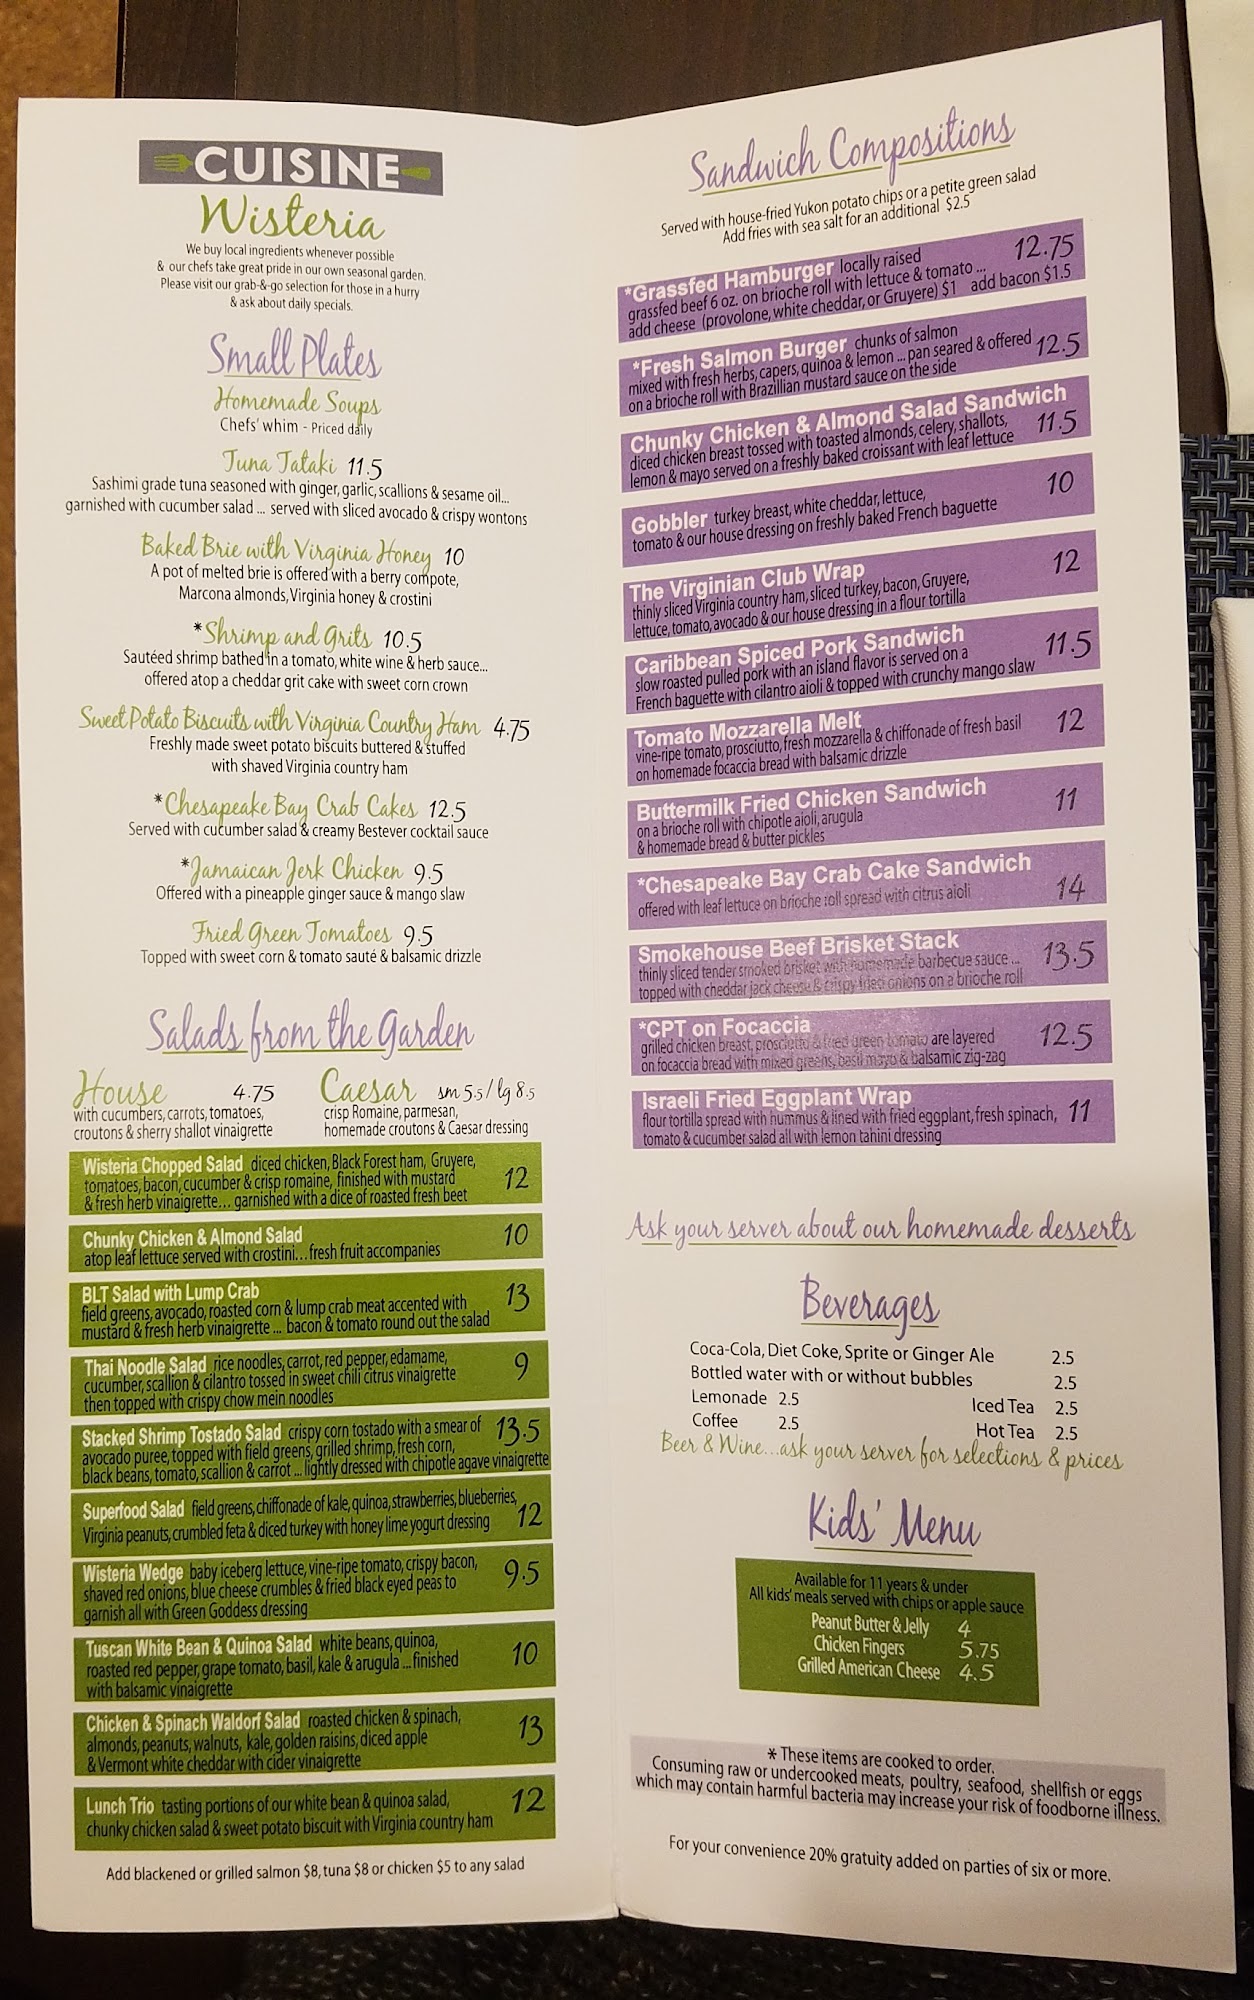 CUISINE
Wisteria
We buy local ingredients whenever possible
& our chefs take great pride in our own seasonal garden.
Please visit our grab-&-go selection for those in a hurry
& ask about daily specials.
Small Plates
Homemade Soups
Chefs' whim - Priced daily
Tuna Tataki 11.5
Sashimi grade tuna seasoned with ginger, garlic, scallions & sesame oil...
garnished with cucumber salad ... served with sliced avocado & crispy wontons
Baked Brie with Virginia Honey 10
A pot of melted brie is offered with a berry compote,
Marcona almonds, Virginia honey & crostini
*Shrimp and Grits 10.5
Sautéed shrimp bathed in a tomato, white wine & herb sauce...
offered atop a cheddar grit cake with sweet corn crown
Sweet Potato Biscuits with Virginia Country Ham 4.75
Freshly made sweet potato biscuits buttered & stuffed
with shaved Virginia country ham
*Chesapeake Bay Crab Cakes 12.5
Served with cucumber salad & creamy Bestever cocktail sauce
*Jamaican Jerk Chicken 9.5
Offered with a pineapple ginger sauce & mango slaw
Fried Green Tomatoes 9.5
Topped with sweet corn & tomato sauté & balsamic drizzle
Salads from the Garden
House 4.75
with cucumbers, carrots, tomatoes,
croutons & sherry shallot vinaigrette
Caesar sm 5.5 / lg 8.5
crisp Romaine, parmesan,
homemade croutons & Caesar dressing
Wisteria Chopped Salad diced chicken, Black Forest ham, Gruyere,
tomatoes, bacon, cucumber & crisp romaine, finished with mustard 12
& fresh herb vinaigrette... garnished with a dice of roasted fresh beet
Chunky Chicken & Almond Salad 10
atop leaf lettuce served with crostini...fresh fruit accompanies
BLT Salad with Lump Crab 13
field greens, avocado, roasted corn & lump crab meat accented with
mustard & fresh herb vinaigrette ... bacon & tomato round out the salad
Thai Noodle Salad rice noodles, carrot, red pepper, edamame, 9
cucumber, scallion & cilantro tossed in sweet chili citrus vinaigrette
then topped with crispy chow mein noodles
Stacked Shrimp Tostado Salad crispy corn tostado with a smear of 13.5
avocado puree, topped with field greens, grilled shrimp, fresh corn,
black beans, tomato, scallion & carrot ... lightly dressed with chipotle agave vinaigrette
Superfood Salad field greens, chiffonade of kale, quinoa, strawberries, blueberries, 12
Virginia peanuts, crumbled feta & diced turkey with honey lime yogurt dressing
Wisteria Wedge baby iceberg lettuce, vine-ripe tomato, crispy bacon, 9.5
shaved red onions, blue cheese crumbles & fried black eyed peas to
garnish all with Green Goddess dressing
Tuscan White Bean & Quinoa Salad white beans, quinoa, 10
roasted red pepper, grape tomato, basil, kale & arugula ... finished
with balsamic vinaigrette
Chicken & Spinach Waldorf Salad roasted chicken & spinach, 13
almonds, peanuts, walnuts, kale, golden raisins, diced apple
& Vermont white cheddar with cider vinaigrette
Lunch Trio tasting portions of our white bean & quinoa salad, 12
chunky chicken salad & sweet potato biscuit with Virginia country ham
Add blackened or grilled salmon $8, tuna $8 or chicken $5 to any salad
Sandwich Compositions
Served with house-fried Yukon potato chips or a petite green salad
Add fries with sea salt for an additional $2.5
*Grassfed Hamburger locally raised 12.75
grassfed beef 6 oz. on brioche roll with lettuce & tomato ...
add cheese (provolone, white cheddar, or Gruyere) $1 add bacon $1.5
*Fresh Salmon Burger chunks of salmon
mixed with fresh herbs, capers, quinoa & lemon ... pan seared & offered 12.5
on a brioche roll with Brazillian mustard sauce on the side
Chunky Chicken & Almond Salad Sandwich
diced chicken breast tossed with toasted almonds, celery, shallots, 11.5
lemon & mayo served on a freshly baked croissant with leaf lettuce
Gobbler turkey breast, white cheddar, lettuce, 10
tomato & our house dressing on freshly baked French baguette
The Virginian Club Wrap 12
thinly sliced Virginia country ham, sliced turkey, bacon, Gruyere,
lettuce, tomato, avocado & our house dressing in a flour tortilla
Caribbean Spiced Pork Sandwich 11.5
slow roasted pulled pork with an island flavor is served on a
French baguette with cilantro aioli & topped with crunchy mango slaw
Tomato Mozzarella Melt 12
vine-ripe tomato, prosciutto, fresh mozzarella & chiffonade of fresh basil
on homemade focaccia bread with balsamic drizzle
Buttermilk Fried Chicken Sandwich 11
on a brioche roll with chipotle aioli, arugula
& homemade bread & butter pickles
*Chesapeake Bay Crab Cake Sandwich 14
offered with leaf lettuce on brioche roll spread with citrus aioli
Smokehouse Beef Brisket Stack 13.5
thinly sliced tender smoked brisket with homemade barbecue sauce ...
topped with cheddar jack cheese & crispy fried onions on a brioche roll
*CPT on Focaccia 12.5
grilled chicken breast, prosciutto & fried green tomato are layered
on focaccia bread with mixed greens, basil mayo & balsamic zig-zag
Israeli Fried Eggplant Wrap
flour tortilla spread with hummus & lined with fried eggplant, fresh spinach, 11
tomato & cucumber salad all with lemon tahini dressing
Ask your server about our homemade desserts
Beverages
Coca-Cola, Diet Coke, Sprite or Ginger Ale 2.5
Bottled water with or without bubbles 2.5
Lemonade 2.5 Iced Tea 2.5
Coffee 2.5 Hot Tea 2.5
Beer & Wine...ask your server for selections & prices
Kids' Menu
Available for 11 years & under
All kids' meals served with chips or apple sauce
Peanut Butter & Jelly 4
Chicken Fingers 5.75
Grilled American Cheese 4.5
* These items are cooked to order.
Consuming raw or undercooked meats, poultry, seafood, shellfish or eggs
which may contain harmful bacteria may increase your risk of foodborne illness.
For your convenience 20% gratuity added on parties of six or more.